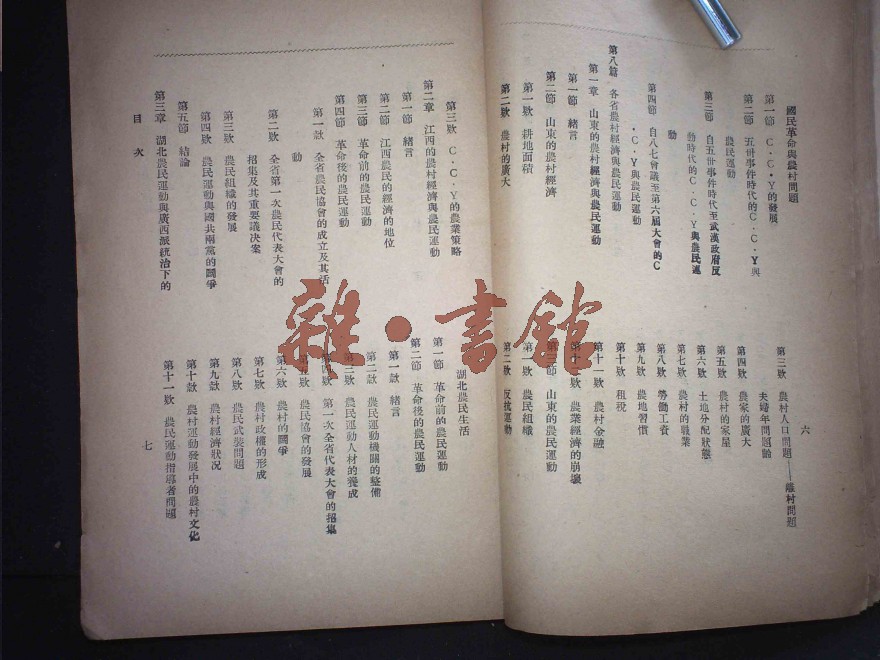 國民革命與農村問題
第一節 C·C·Y的發展
第二節 五卅事件時代的C·C·Y與
農民運動
第三節 自五卅事件時代至武漢政府反
動時代的C·C·Y與農民運
動
第四節 自八七會議至第六屆大會的C
·C·Y與農民運動
第八篇 各省農村經濟與農民運動
第一章 山東的農村經濟與農民運動
第一節 緒言
第二節 山東的農村經濟
第一欵 耕地面積
第二欵 農村的廣大
六
第三欵 農村人口問題——離村問題
夫婦年問題齡
第四欵 農家的廣大
第五欵 農村的家屋
第六欵 土地分配狀態
第七欵 農村的職業
第八欵 勞働工資
第九欵 農地習慣
第十欵 租稅
第十一欵 農村金融
第十二欵 農業經濟的崩壞
第三節 山東的農民運動
第一欵 農民組織
第二欵 反抗運動
第三欵 C·C·Y的農業策略
第二章 江西的農村經濟與農民運動
第一節 緒言
第二節 江西農民的經濟的地位
第三節 革命前的農民運動
第四節 革命後的農民運動
第一欵 全省農民協會的成立及其活
動
第二欵 全省第一次農民代表大會的
招集及其重要議决案
第三欵 農民組織的發展
第四欵 農民運動與國共兩黨的鬭爭
第五節 結論
第三章 湖北農民運動與廣西派統治下的
目次
湖北農民生活
第一節 革命前的農民運動
第二節 革命後的農民運動
第一欵 緒言
第二欵 農民運動機關的整備
第三欵 農民運動人材的養成
第四欵 第一次全省代表大會的招集
第五欵 農民協會的發展
第六欵 農村的鬭爭
第七欵 農村政權的形成
第八欵 農民武裝問題
第九欵 農村經濟狀況
第十欵 農村運動發展中的農村文化
第十一欵 農民運動指導者問題
七
雜·書館